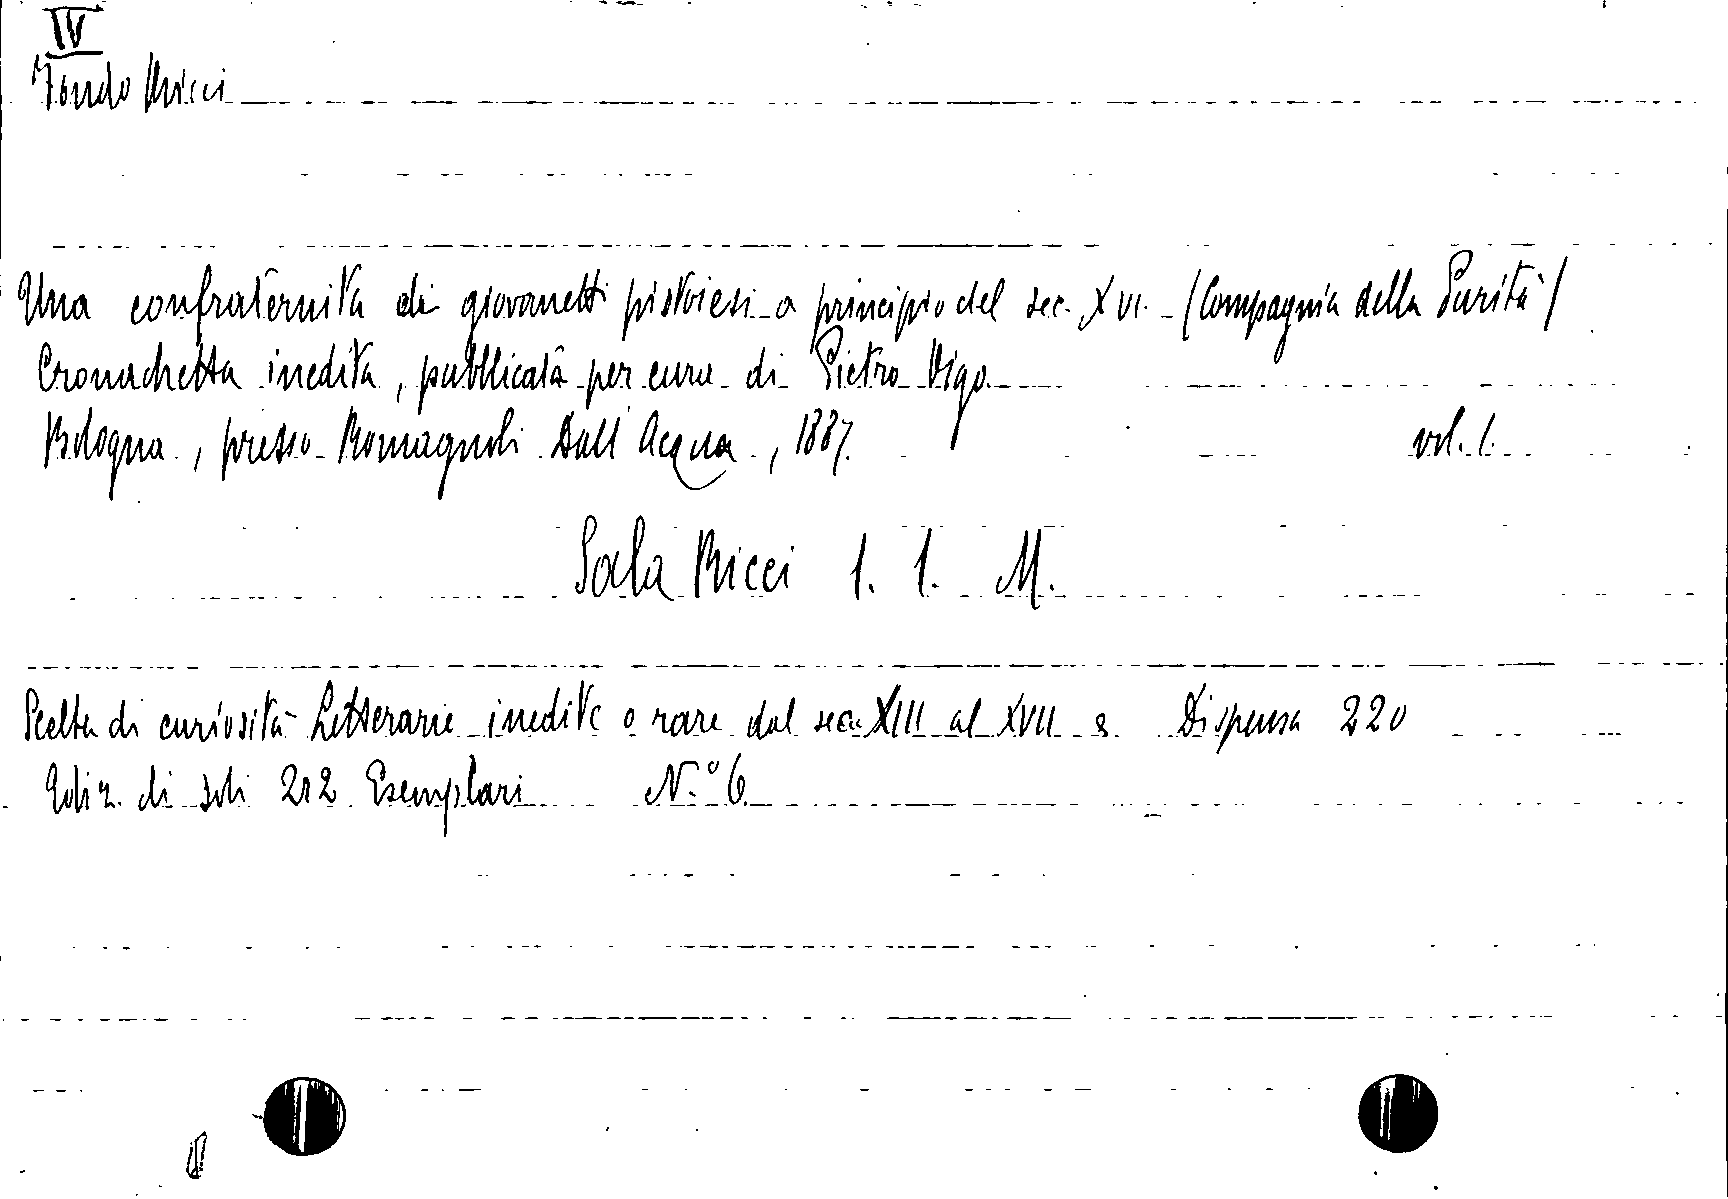 IV
Fondo Ricci
Una confraternita di giovanetti pistoiesi a principio del sec. XVI. (Compagnia della Purità)
Cronachetta inedita, pubblicata per cura di Pietro Vigo.
Bologna, presso Romagnoli Dall'Acqua, 1887. vol. 1.
Sala Ricci 1. 1. M.
Scelta di curiosità Letterarie inedite o rare dal sec. XIII al XVII Dispensa 220
Ediz. di soli 212 Esemplari N.º 6